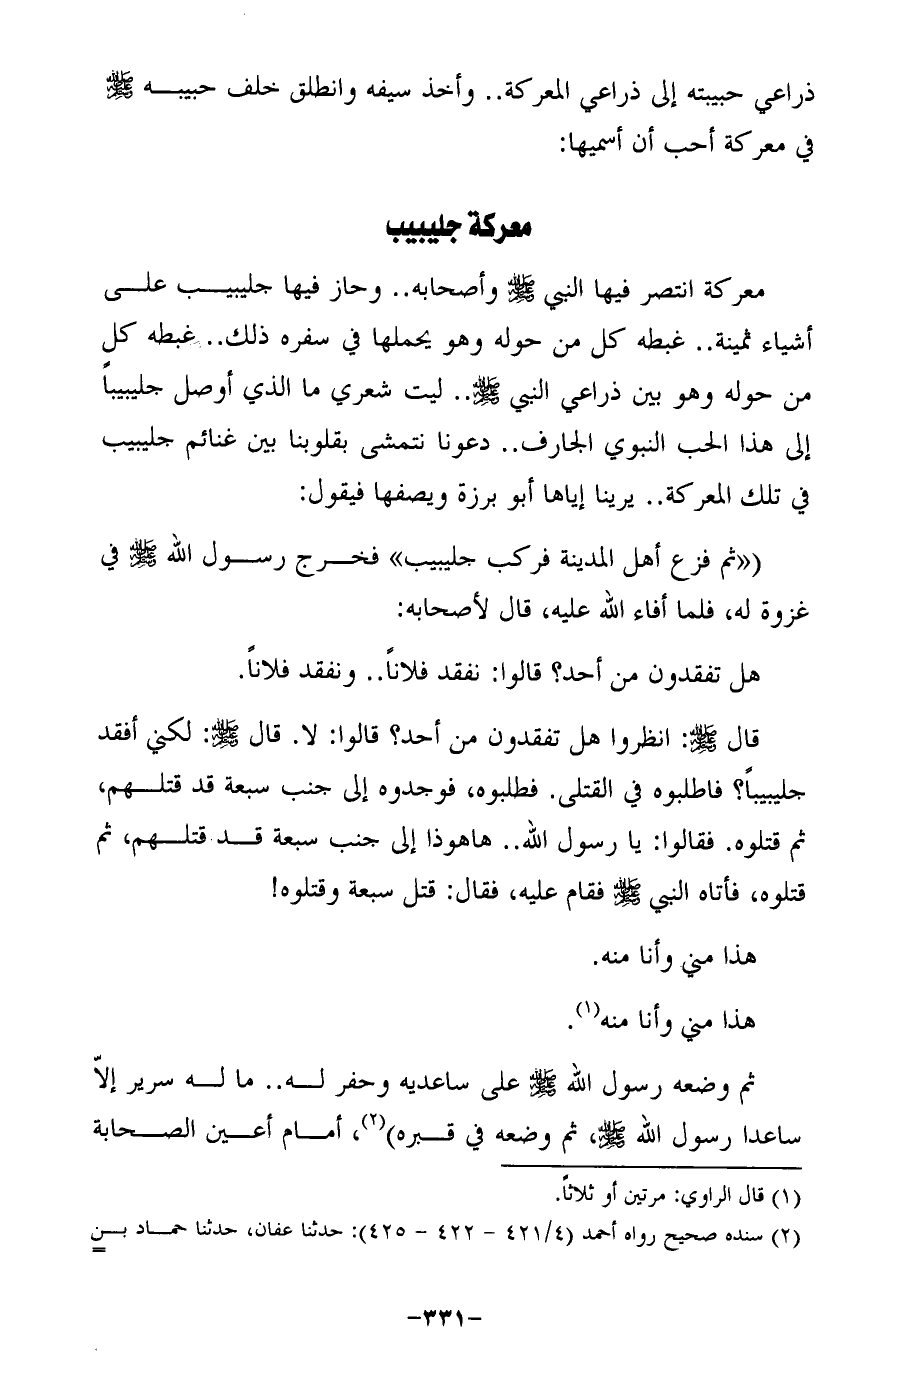 ذراعي حبيبته إلى ذراعي المعركة.. وأخذ سيفه وانطلق خلف حبيبه ﷺ
في معركة أحب أن أسميها:
معركة جليبيب
معركة انتصر فيها النبي ﷺ وأصحابه.. وحاز فيها جليبيب على
أشياء ثمينة.. غبطه كل من حوله وهو يحملها في سفره ذلك.. غبطه كل
من حوله وهو بين ذراعي النبي ﷺ.. ليت شعري ما الذي أوصل جليبيباً
إلى هذا الحب النبوي الجارف.. دعونا نتمشى بقلوبنا بين غنائم جليبيب
في تلك المعركة.. يرينا إياها أبو برزة ويصفها فيقول:
(«ثم فزع أهل المدينة فركب جليبيب» فخرج رسول الله ﷺ في
غزوة له، فلما أفاء الله عليه، قال لأصحابه:
هل تفقدون من أحد؟ قالوا: نفقد فلاناً.. ونفقد فلاناً.
قال ﷺ: انظروا هل تفقدون من أحد؟ قالوا: لا. قال ﷺ: لكني أفقد
جليبيباً؟ فاطلبوه في القتلى. فطلبوه، فوجدوه إلى جنب سبعة قد قتلهم،
ثم قتلوه. فقالوا: يا رسول الله.. هاهوذا إلى جنب سبعة قد قتلهم، ثم
قتلوه، فأتاه النبي ﷺ فقام عليه، فقال: قتل سبعة وقتلوه!
هذا مني وأنا منه.
هذا مني وأنا منه(١).
ثم وضعه رسول الله ﷺ على ساعديه وحفر له.. ما له سرير إلاّ
ساعدا رسول الله ﷺ، ثم وضعه في قبره)(٢)، أمام أعين الصحابة
(١) قال الراوي: مرتين أو ثلاثاً.
(٢) سنده صحيح رواه أحمد (٤/٤٢١ – ٤٢٢ – ٤٢٥): حدثنا عفان، حدثنا حماد بن
=
-٣٣١-